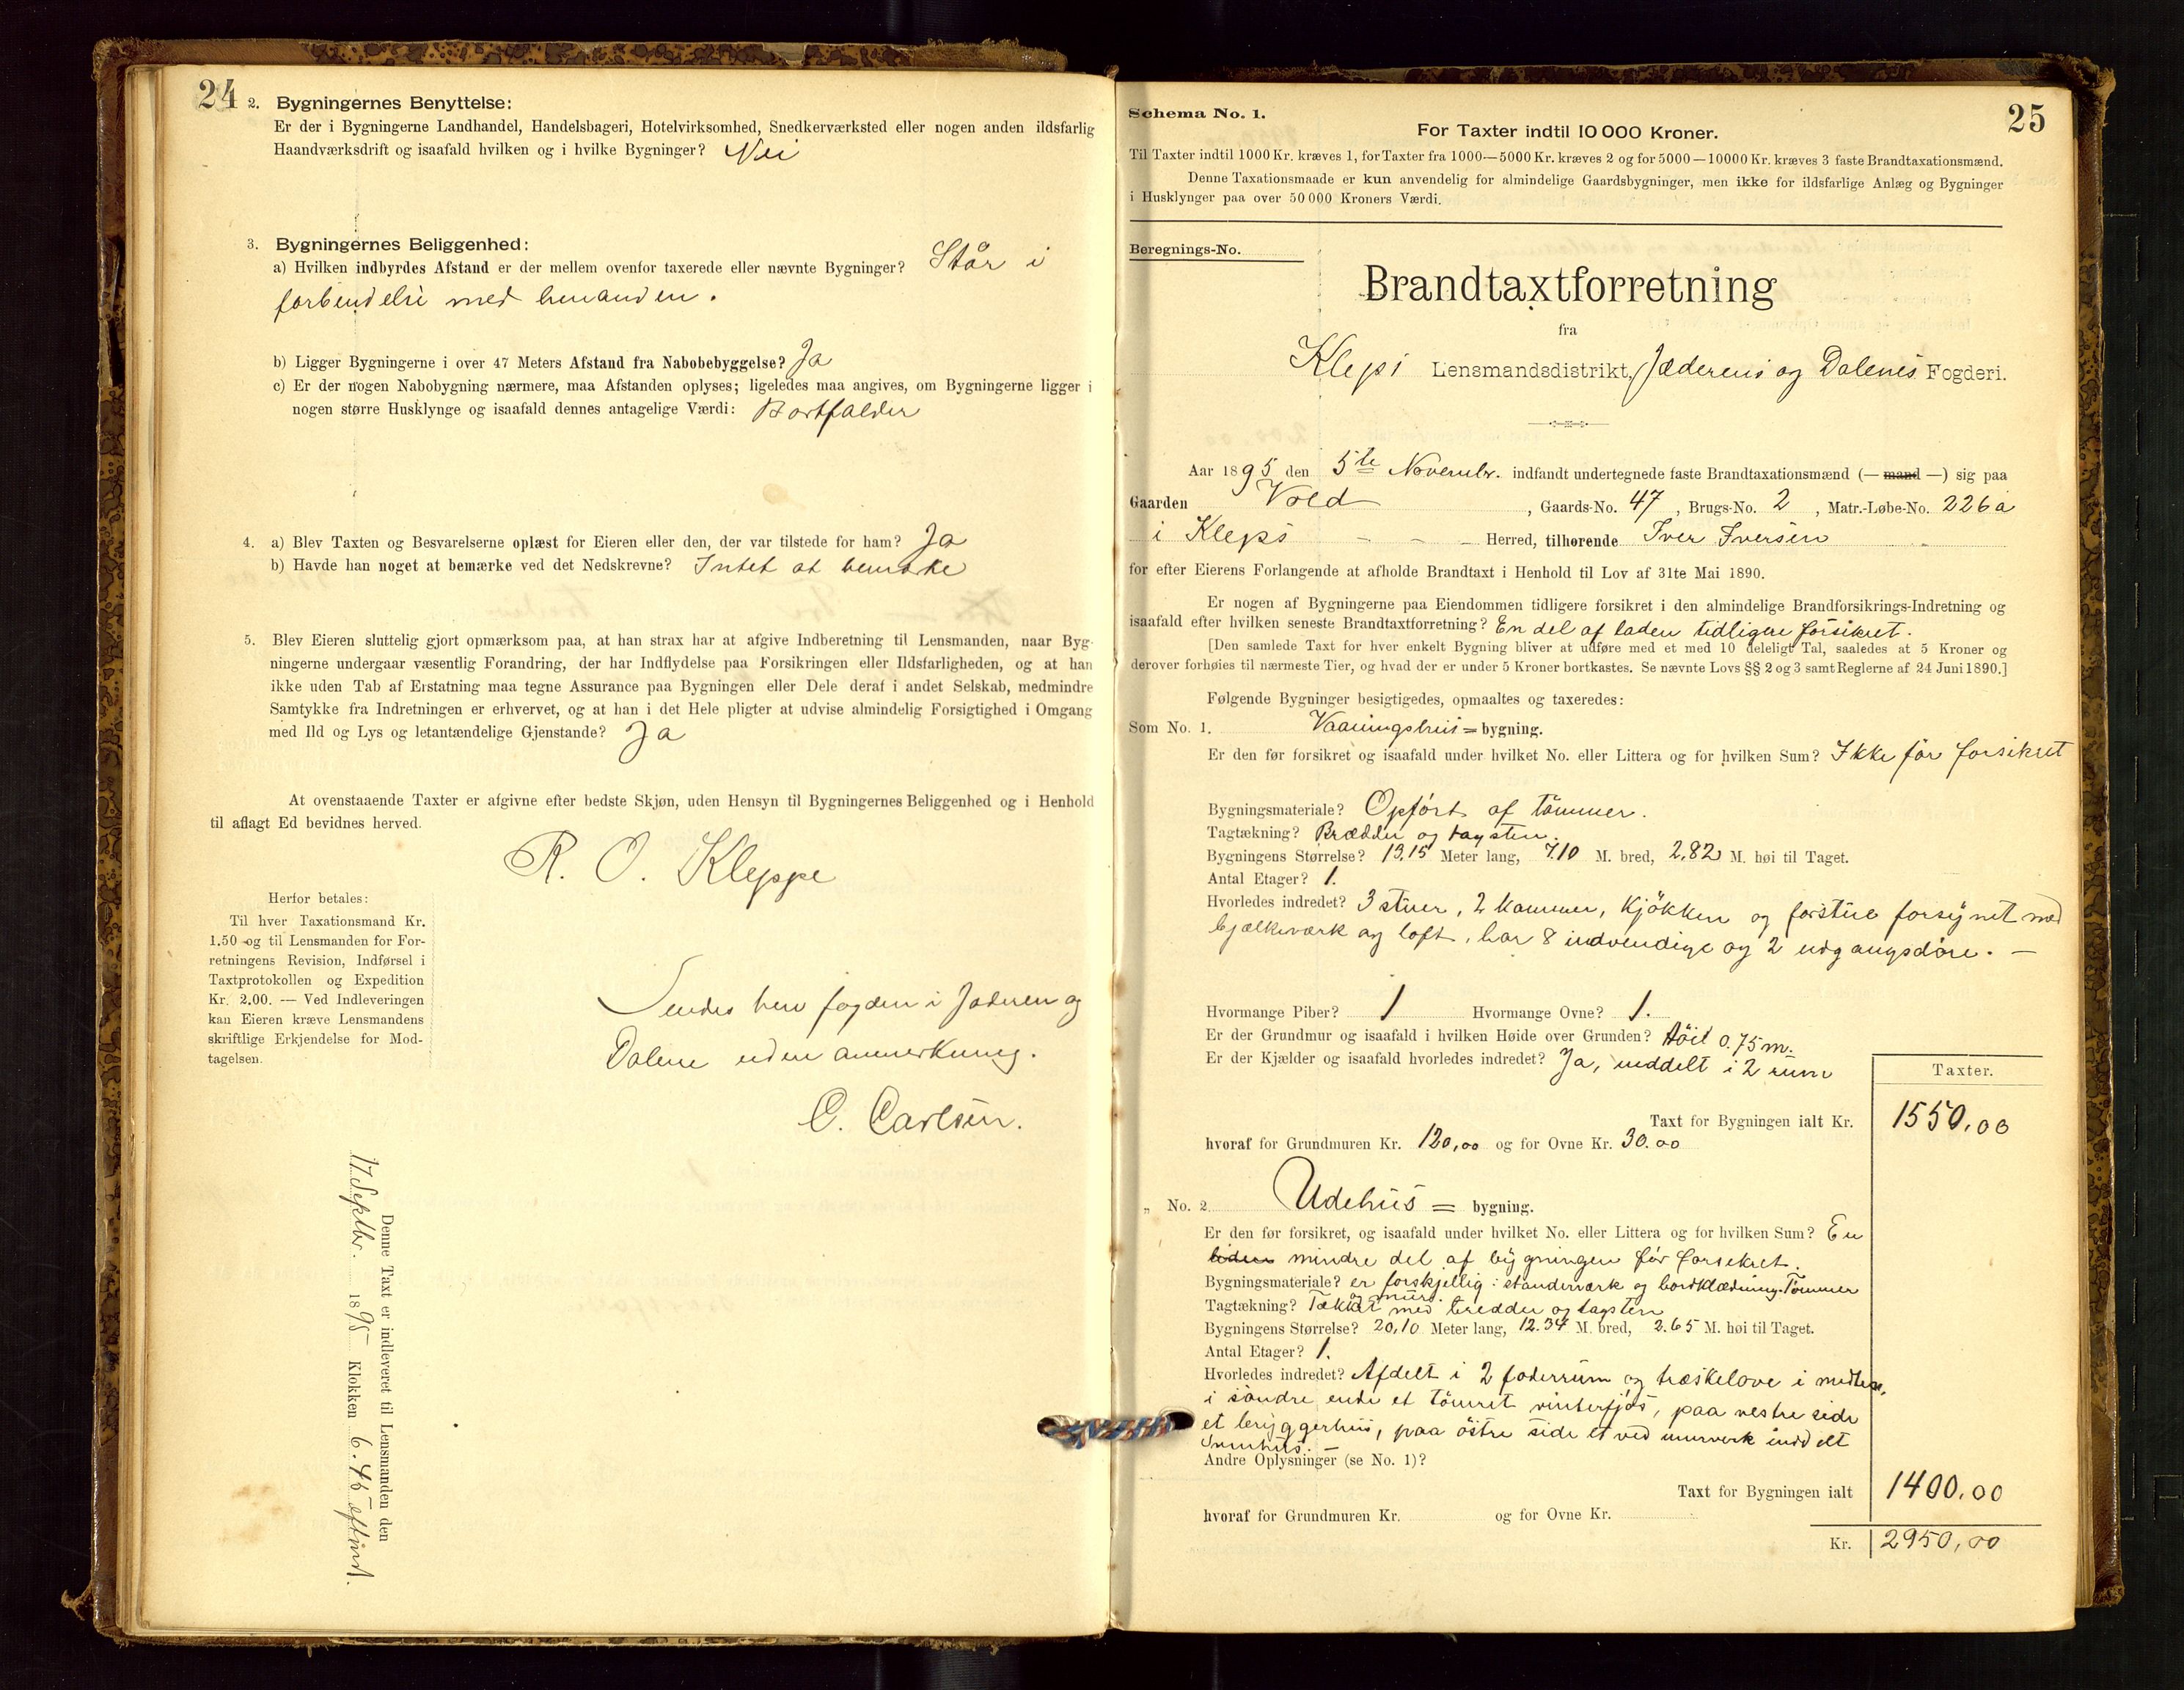 24
2. Bygningernes Benyttelse:
Er der i Bygningerne Landhandel, Handelsbageri, Hotelvirksomhed, Snedkerværksted eller nogen anden ildsfarlig
Haandværksdrift og isaafald hvilken og i hvilke Bygninger? Nei
3. Bygningernes Beliggenhed:
a) Hvilken indbyrdes Afstand er der mellem ovenfor taxerede eller nævnte Bygninger? Står i
forbindelse med hinanden.
b) Ligger Bygningerne i over 47 Meters Afstand fra Nabobebyggelse? Ja
c) Er der nogen Nabobygning nærmere, maa Afstanden oplyses; ligeledes maa angives, om Bygningerne ligger i
nogen større Husklynge og isaafald dennes antagelige Værdi: Bortfalder
4. a) Blev Taxten og Besvarelserne oplæst for Eieren eller den, der var tilstede for ham? Ja
b) Havde han noget at bemærke ved det Nedskrevne? Intet at bemærke
5. Blev Eieren sluttelig gjort opmærksom paa, at han strax har at afgive Indberetning til Lensmanden, naar Byg-
ningerne undergaar væsentlig Forandring, der har Indflydelse paa Forsikringen eller Ildsfarligheden, og at han
ikke uden Tab af Erstatning maa tegne Assurance paa Bygningen eller Dele deraf i andet Selskab, medmindre
Samtykke fra Indretningen er erhvervet, og at han i det Hele pligter at udvise almindelig Forsigtighed i Omgang
med Ild og Lys og letantændelige Gjenstande? Ja
At ovenstaaende Taxter er afgivne efter bedste Skjøn, uden Hensyn til Bygningernes Beliggenhed og i Henhold
til aflagt Ed bevidnes herved.
R. O. Kleppe
Herfor betales:
Til hver Taxationsmand Kr.
1.50 og til Lensmanden for For-
retningens Revision, Indførsel i
Taxtprotokollen og Expedition
Kr. 2.00. — Ved Indleveringen
kan Eieren kræve Lensmandens
skriftlige Erkjendelse for Mod-
tagelsen.
Sendes herr fogden i Jæderen og
Dalene uden anmerkning.
C. Carlsen.
Denne Taxt er indleveret til Lensmanden den
17 Septbr. 1895 Klokken 6.45 eftmd.
25
Schema No. 1.
For Taxter indtil 10 000 Kroner.
Til Taxter indtil 1000 Kr. kræves 1, for Taxter fra 1000—5000 Kr. kræves 2 og for 5000—10000 Kr. kræves 3 faste Brandtaxationsmænd.
Denne Taxationsmaade er kun anvendelig for almindelige Gaardsbygninger, men ikke for ildsfarlige Anlæg og Bygninger
i Husklynger paa over 50 000 Kroners Værdi.
Beregnings-No.
Brandtaxtforretning
fra
Kleps Lensmandsdistrikt, Jæderens og Dalenes Fogderi.
Aar 1895 den 5te Novembr. indfandt undertegnede faste Brandtaxationsmænd (— mand —) sig paa
Gaarden Vold, Gaards-No. 47, Brugs-No. 2, Matr.-Løbe-No. 226a
i Kleps Herred, tilhørende Iver Iversen
for efter Eierens Forlangende at afholde Brandtaxt i Henhold til Lov af 31te Mai 1890.
Er nogen af Bygningerne paa Eiendommen tidligere forsikret i den almindelige Brandforsikrings-Indretning og
isaafald efter hvilken seneste Brandtaxtforretning? En del af laden tidligere forsikret.
[Den samlede Taxt for hver enkelt Bygning bliver at udføre med et med 10 deleligt Tal, saaledes at 5 Kroner og
derover forhøies til nærmeste Tier, og hvad der er under 5 Kroner bortkastes. Se nævnte Lovs §§ 2 og 3 samt Reglerne af 24 Juni 1890.]
Følgende Bygninger besigtigedes, opmaaltes og taxeredes:
Som No. 1. Vaaningshus = bygning.
Er den før forsikret og isaafald under hvilket No. eller Littera og for hvilken Sum? Ikke før forsikret
Bygningsmateriale? Opført af tömmer.
Tagtækning? Brædder og tagsten.
Bygningens Størrelse? 13,15 Meter lang, 7.10 M. bred, 2,82 M. høi til Taget.
Antal Etager? 1.
Hvorledes indredet? 3 stuer, 2 kammer, kjökken og forstue forsynet med
bjælkeværk og loft, har 8 indvendige og 2 udgangsdöre. —
Hvormange Piber? 1 Hvormange Ovne? 1.
Er der Grundmur og isaafald i hvilken Høide over Grunden? Höit 0.75 m.
Er der Kjælder og isaafald hvorledes indredet? Ja, inddelt i 2 rum
Taxter.
Taxt for Bygningen ialt Kr. 1550,00
hvoraf for Grundmuren Kr. 120,00 og for Ovne Kr. 30.00
„ No. 2. Udehus = bygning.
Er den før forsikret, og isaafald under hvilket No. eller Littera og for hvilken Sum? En
liden mindre del af bygningen før forsekret.
Bygningsmateriale? er forskjellig: standerværk og bordklædning. Tömmer
og mur.
Tagtækning? Tækket med brædder og tagsten
Bygningens Størrelse? 20,10 Meter lang, 12.34 M. bred, 2.65 M. høi til Taget.
Antal Etager? 1.
Hvorledes indredet? Afdelt i 2 foderrum og træskelove i midten,
i søndre ende et tömret vinterfjøs, paa vestre side
et bryggerhus, paa östre side et ved murverk indd elt
Andre Oplysninger (se No. 1)?
Taxt for Bygningen ialt 1400,00
hvoraf for Grundmuren Kr. og for Ovne Kr.
Kr. 2950,00